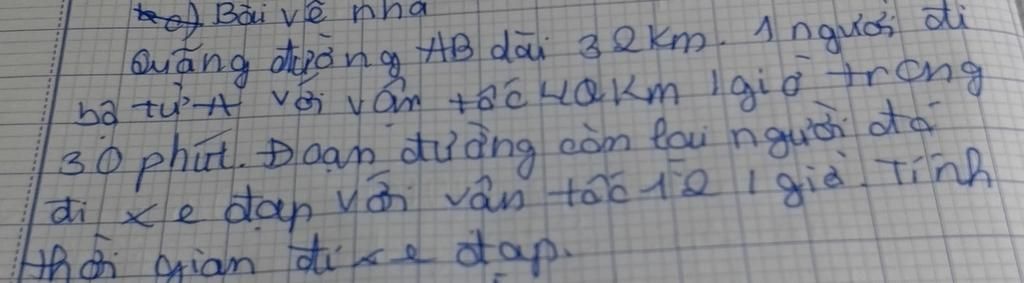 c) Bài về nhà
Quãng đường AB dài 32km. 1 người đi
bộ từ A với vận tốc 4,2km/giờ trong
30 phút. Đoạn đường còn lại người đó
đi xe đạp với vận tốc 12/giờ. Tính
thời gian đi xe đạp.